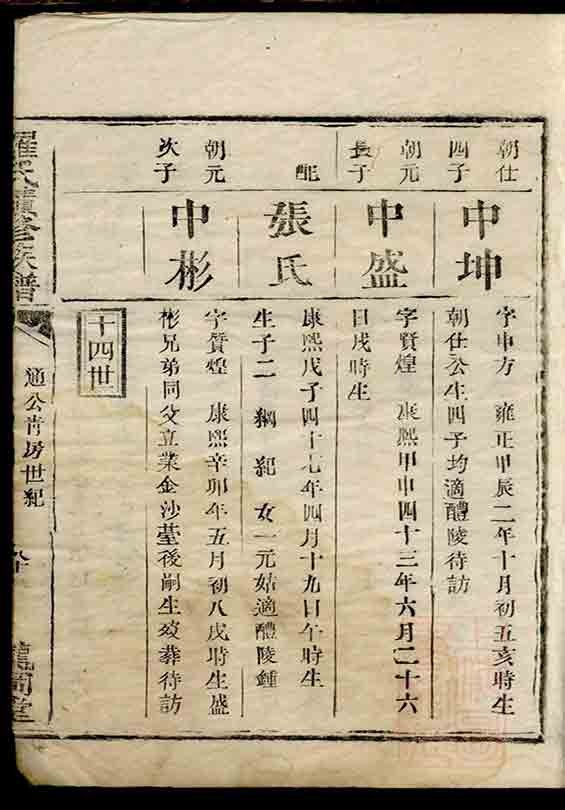 朝仕
四子
中坤
字中方　雍正甲辰二年十月初五亥時生
朝仕公生四子均適醴陵待訪
朝元
長子
中盛
字賢煌　康熙甲申四十三年六月二十六
日戌時生
配
張氏
康熙戊子四十七年四月十九日午時生
生子二　綱　紀　女一元姑適醴陵鍾
朝元
次子
中彬
字賢煌　康熙辛卯年五月初八戌時生盛
彬兄弟同父立業金沙墓後嗣生歿葬待訪
十四世
羅氏續修族譜
通公青房世紀